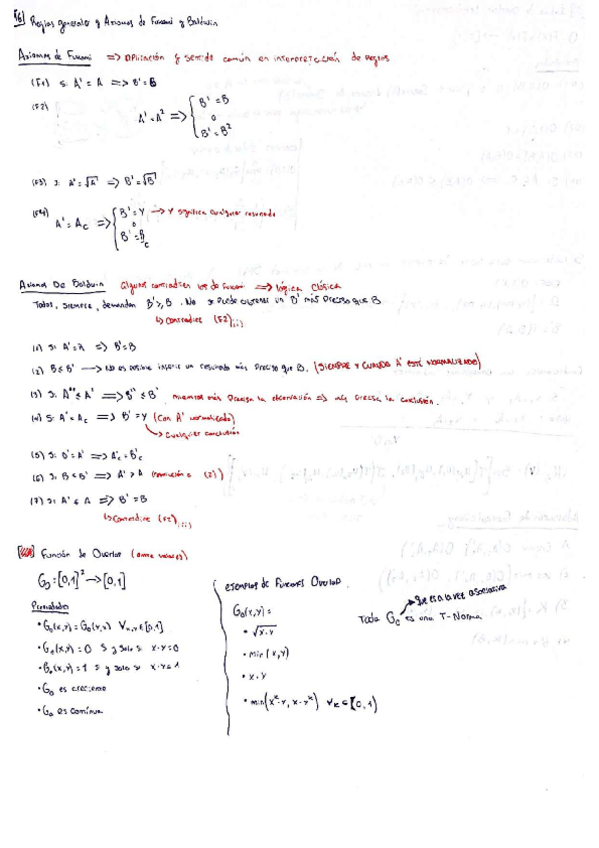 [6] Reglas generales y Axiomas de Fukami y Baldwin
Axiomas de Fukami => Aplicación y sentido común en interpretación de Reglas
(F1) Si A' = A => B' = B
(F2) A' = A² => { B' = B
o
B' = B²
(F3) Si A' = √A => B' = √B
(F4) A' = Ac => { B' = Y → Y significa cualquier resultado
o
B' = Bc
Axiomas De Baldwin Algunos contradicen los de Fukami => lógica Clásica
Todos, siempre, demandan B' ≥ B. No se puede obtener un B' más preciso que B
↳ Contradice (F2)ii)
(1) Si A' = A => B' = B
(2) B ≤ B' → No es posible inferir un resultado más preciso que B. (SIEMPRE Y CUANDO A' ESTÉ NORMALIZADO)
(3) Si A'' ≤ A' => B'' ≤ B' mientras más precisa la observación => más precisa la conclusión.
(4) Si A' = Ac => B' = Y (Con A' normalizado)
↳ Cualquier conclusión
(5) Si B' = A' => A'c = B'c
(6) Si B ≤ B' => A' > A
(7) Si A' ≤ A => B' = B
↳ Contradice (F2)ii)
Función de Overlap
G₀: [0,1]² → [0,1]
Propiedades
• G₀(x,y) = G₀(y,x) ∀x,y∈[0,1]
• G₀(x,y) = 0 si y solo si x·y = 0
• G₀(x,y) = 1 si y solo si x·y = 1
• G₀ es creciente
• G₀ es continua
ejemplos de Funciones Overlap
G₀(x,y) =
• √x·y
• min(x,y)
• x·y
• min(xᵏ·y, x·yᵏ) ∀k∈[0,1)
Que es a la vez asociativa
Toda G₀ es una T-Norma